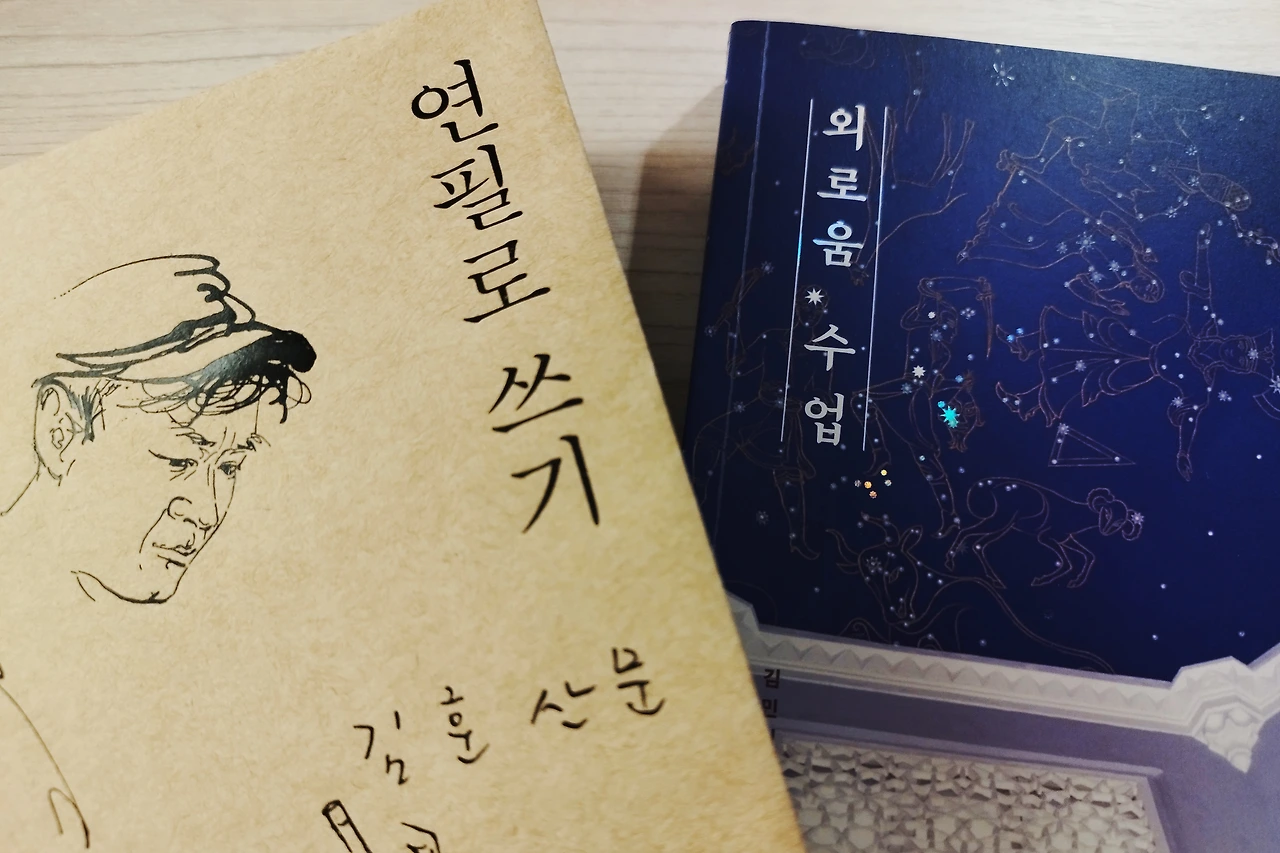 연필로 쓰기
김훈 산문
외로움 수업
김민